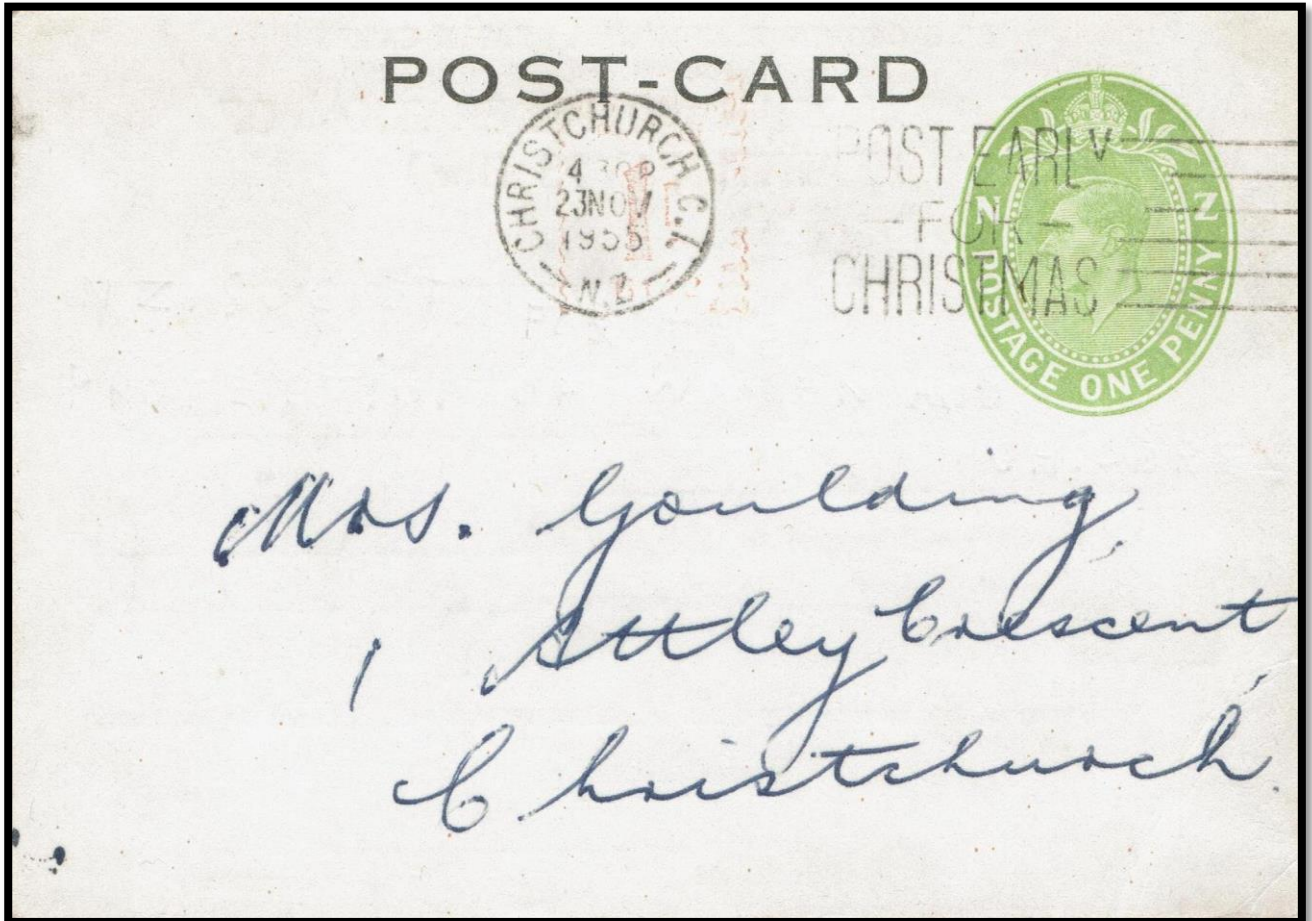 POST-CARD
CHRISTCHURCH C.1.
4 30 P
23 NOV
1955
N.Z.
POST EARLY
— FOR —
CHRISTMAS
N Z
POSTAGE ONE PENNY
Mrs. Goulding,
1 Attley Crescent,
Christchurch.